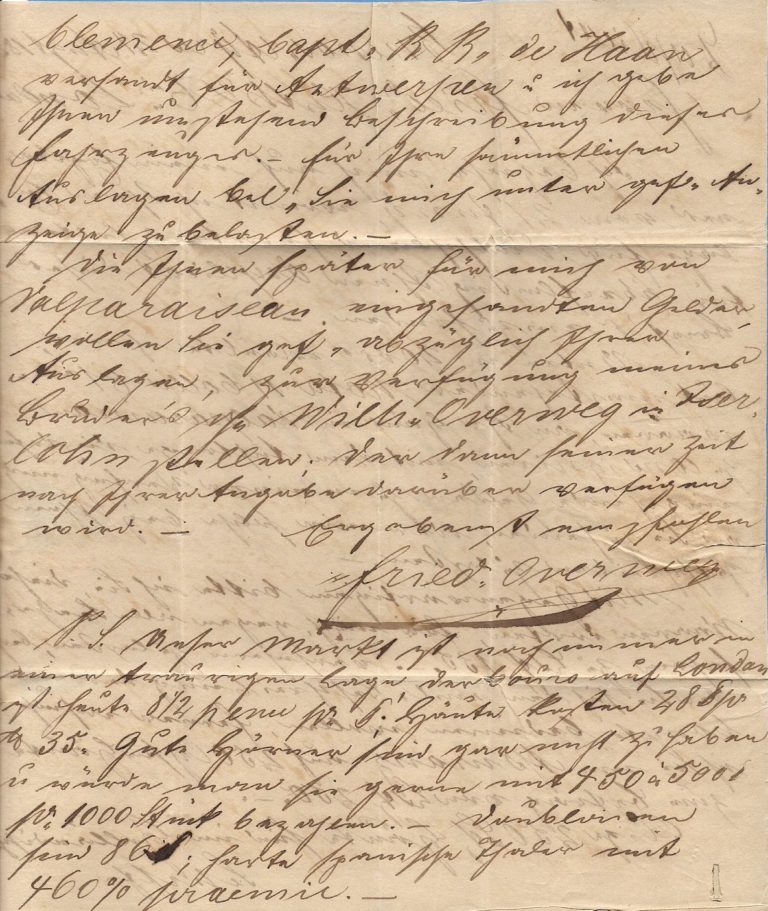 Clemence, Capt. R. R. de Haan
versandt für Antwerpen u ich gebe
Ihnen umstehend Beschreibung dieses
Fahrzeuges. – Für Ihre sämmtlichen
Auslagen bel. Sie mich unter gef. An-
zeige zu belasten. –
Die Ihnen später für mich von
Valparaiso an eingesandten Gelder,
wollen Sie gef. abzüglich Ihrer
Auslagen, zur Verfügung meines
Bruders Wilh. Overweg in Iser-
lohn stellen, der dann seiner Zeit
nach Ihrer Angabe darüber verfügen
wird. – Ergebenst empfohlen
Fried. Overweg
P. S. Unser Markt ist noch immer in
einer traurigen Lage der Cours auf London
ist heute 8 1/2 penc pr $. Häute kosten 28 $ pr
35. Gute Hörner sind gar nicht zu haben
u würde man sie gerne mit 450 à 500 $
pr. 1000 Stück bezahlen. – Doublonen
sind; harte spanische Thaler mit
460% praemie. –